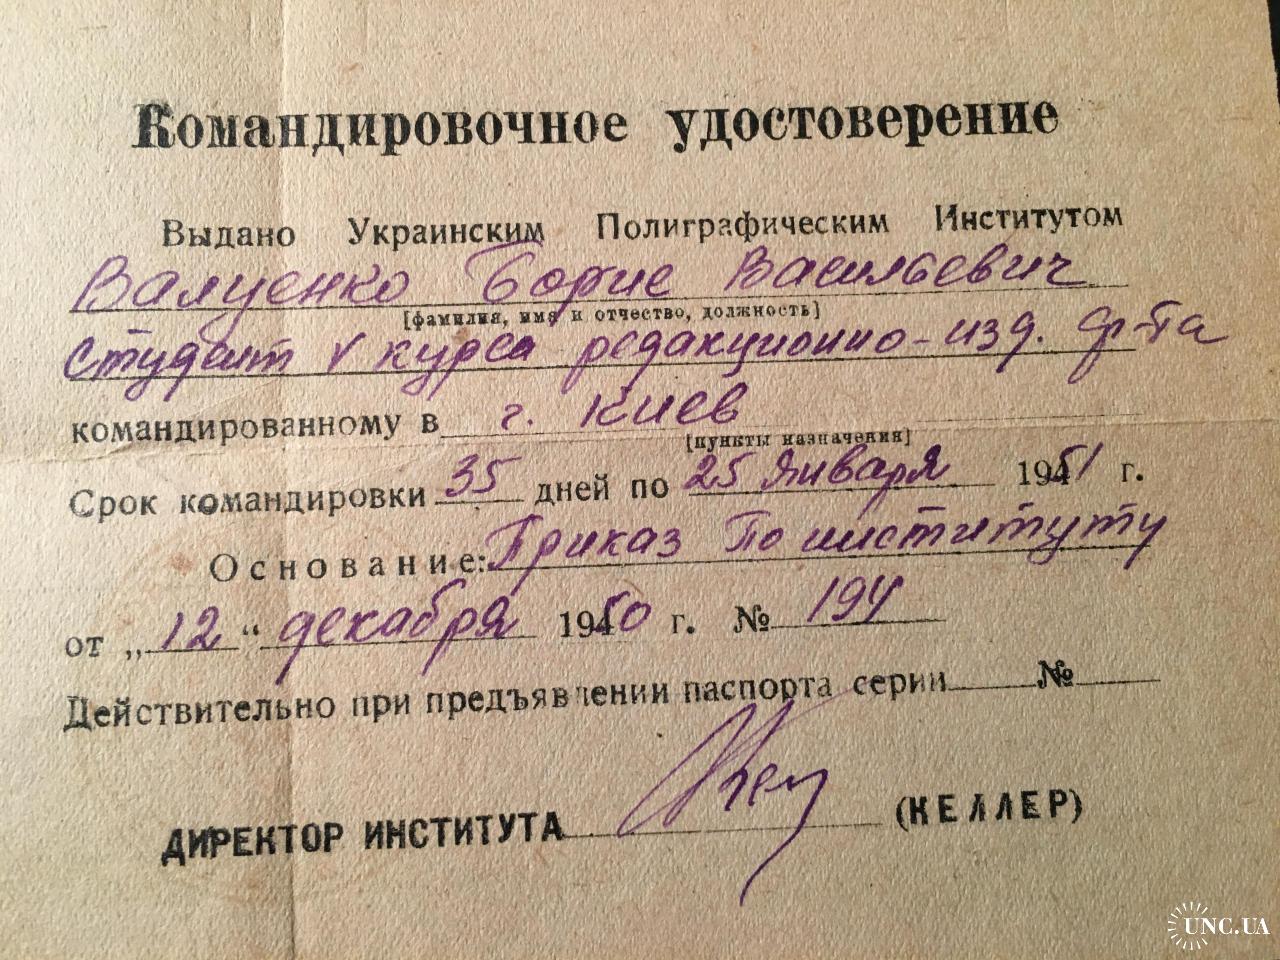 Командировочное удостоверение
Выдано Украинским Полиграфическим Институтом
Валуенко Борис Васильевич
[фамилия, имя и отчество, должность]
студент V курса редакционно-изд. ф-та
командированному в г. Киев
[пункты назначения]
Срок командировки 35 дней по 25 января 1951 г.
Основание: Приказ по институту
от „12“ декабря 1950 г. № 194
Действительно при предъявлении паспорта серии № 
ДИРЕКТОР ИНСТИТУТА (КЕЛЛЕР)
UNC.UA